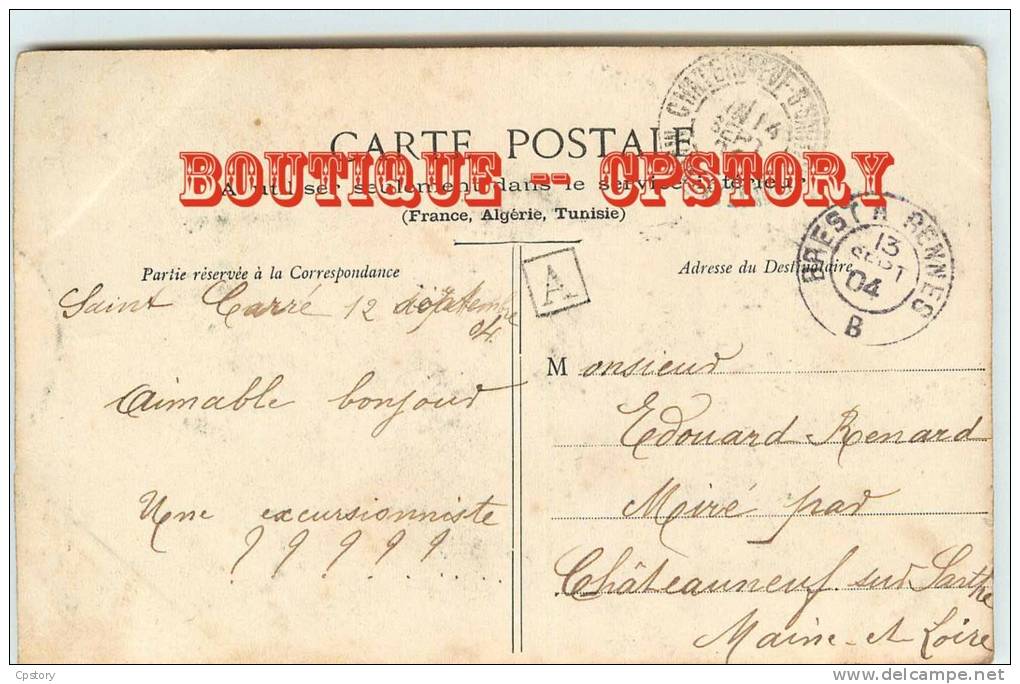 CARTE POSTALE
BOUTIQUE -- CPSTORY
A utiliser seulement dans le service intérieur
(France, Algérie, Tunisie)
Partie réservée à la Correspondance
Saint Carré 12 septembre
04.
Aimable bonjour
Une excursionniste
? ? ? ? ? . . . . .
A
Adresse du Destinataire
BREST A RENNES
13
SEPT
04
B
Monsieur
Edouard Renard
Miré par
Châteauneuf sur Sarthe
Maine-et-Loire
Cpstory
delcampe.net